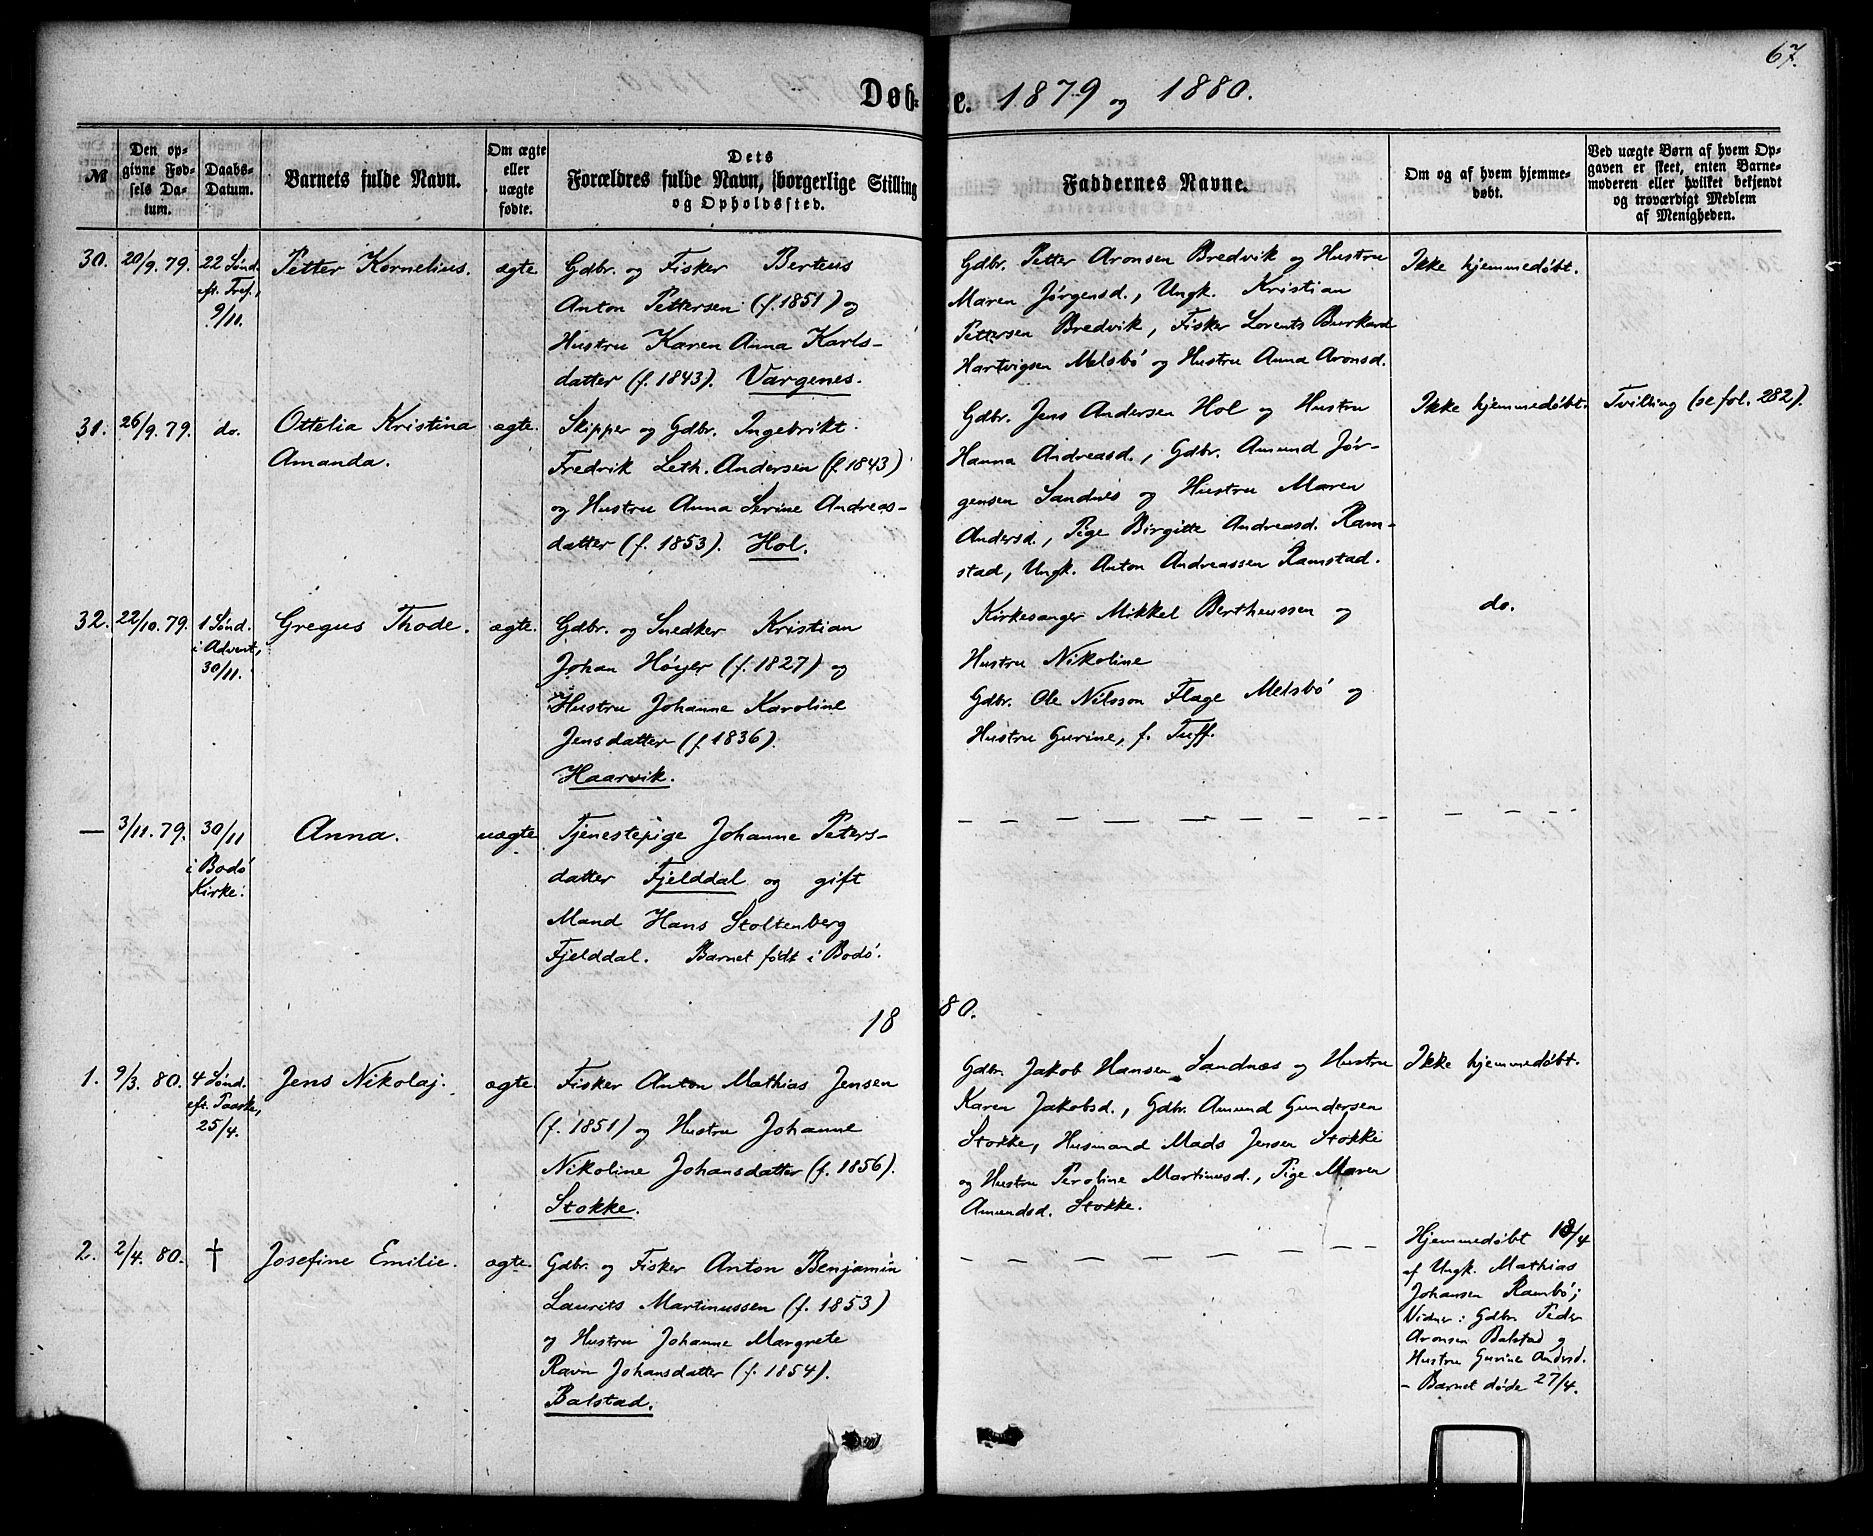 67.
Døbte. 1879 og 1880.
№
Den op-
givne Fød-
sels Da-
tum.
Daabs-
Datum.
Barnets fulde Navn.
Om ægte
eller
uægte
fødte.
Dets
Forældres fulde Navn, borgerlige Stilling
og Opholdssted.
Faddernes Navne.
Om og af hvem hjemme-
døbt.
Ved uægte Børn af hvem Op-
gaven er skeet, enten Barne-
moderen eller hvilket bekjendt
og troværdigt Medlem
af Menigheden.
30.
20/9. 79.
22 Sønd.
eft. Tref.,
9/11.
Petter Kornelius.
ægte
Gdbr. og Fisker Berteus
Anton Pettersen (f. 1851) og
Hustru Karen Anna Karls-
datter (f. 1843). Vargenes.
Gdbr. Petter Aronsen Bredvik og Hustru
Maren Jørgensd., Ungk. Kristian
Pettersen Bredvik, Fisker Lorents Burkard
Hartvigsen Melsbö og Hustru Anna Aronsd.
Ikke hjemmedøbt.
31.
26/9. 79.
do.
Ottelia Kristina
Amanda.
ægte.
Skipper og Gdbr. Ingebrikt
Fredrik Leth. Andersen (f. 1843)
og Hustru Anna Serine Andreas-
datter (f. 1853). Hol.
Gdbr. Jens Andersen Hol og Hustru
Hanna Andreasd., Gdbr. Amund Jør-
gensen Sandnes og Hustru Maren
Andersd., Pige Birgitte Andreasd. Ram-
stad, Ungk. Anton Andreassen Ramstad.
Ikke hjemmedøbt.
Tvilling (se fol. 282).
32.
22/10. 79.
1 Sønd.
i Advent,
30/11.
Gregus Thode.
ægte.
Gdbr. og Snedker Kristian
Johan Høyer (f. 1827) og
Hustru Johanne Karoline
Jensdatter (f. 1836).
Haarvik.
Kirkesanger Mikkel Bertheussen og
Hustru Nikoline
Gdbr. Ole Nilsson Flage Melsbö og
Hustru Gurine, f. Tuff.
do.
—
3/11. 79.
30/11
i Bodö
Kirke.
Anna.
uægte
Tjenestepige Johanne Peters-
datter Fjelddal og gift
Mand Hans Stoltenberg
Fjelddal. Barnet født i Bodö.
1880.
1.
9/3. 80.
4 Sønd.
eft. Paaske,
25/4.
Jens Nikolaj.
ægte.
Fisker Anton Mathias Jensen
(f. 1851) og Hustru Johanne
Nikoline Johansdatter (f. 1856).
Stokke.
Gdbr. Jakob Hansen Sandnæs og Hustru
Karen Jakobsd., Gdbr. Amund Gundersen
Stokke, Husmand Mads Jensen Stokke
og Hustru Peroline Martinusd., Pige Maren
Amundsd. Stokke.
Ikke hjemmedøbt.
2.
2/4. 80.
†
Josefine Emilie.
ægte.
Gdbr. og Fisker Anton Benjamin
Laurits Martinussen (f. 1853)
og Hustru Johanne Margrete
Ravn Johansdatter (f. 1854).
Balstad.
Hjemmedøbt 18/4
af Ungk. Mathias
Johansen Rambö;
Vidner: Gdbr. Peder
Aronsen Balstad og
Hustru Gurine Andrsd.
– Barnet døde 27/4.